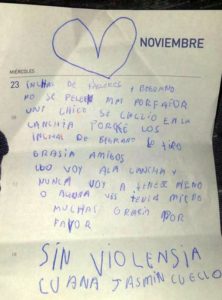 NOVIEMBRE
MIÉRCOLES
23 INCHAS DE TALLERES Y BELGRANO
NO SE PELEEN MAS PORFABOR
UN CHICO SE CALLIO EN LA
CANCHITA PORQE LOS
INCHAS DE BELGRANO LO TIRO
GRASIA AMIGOS
YO VOY ALA CANCHA Y
NUNCA VOY A TENER MIEDO
O ALGUNA VES TENIA MIEDO
MUCHAS GRACIA POR
FAVOR
SIN VIOLENSIA
LUANA JASMIN CUELLO